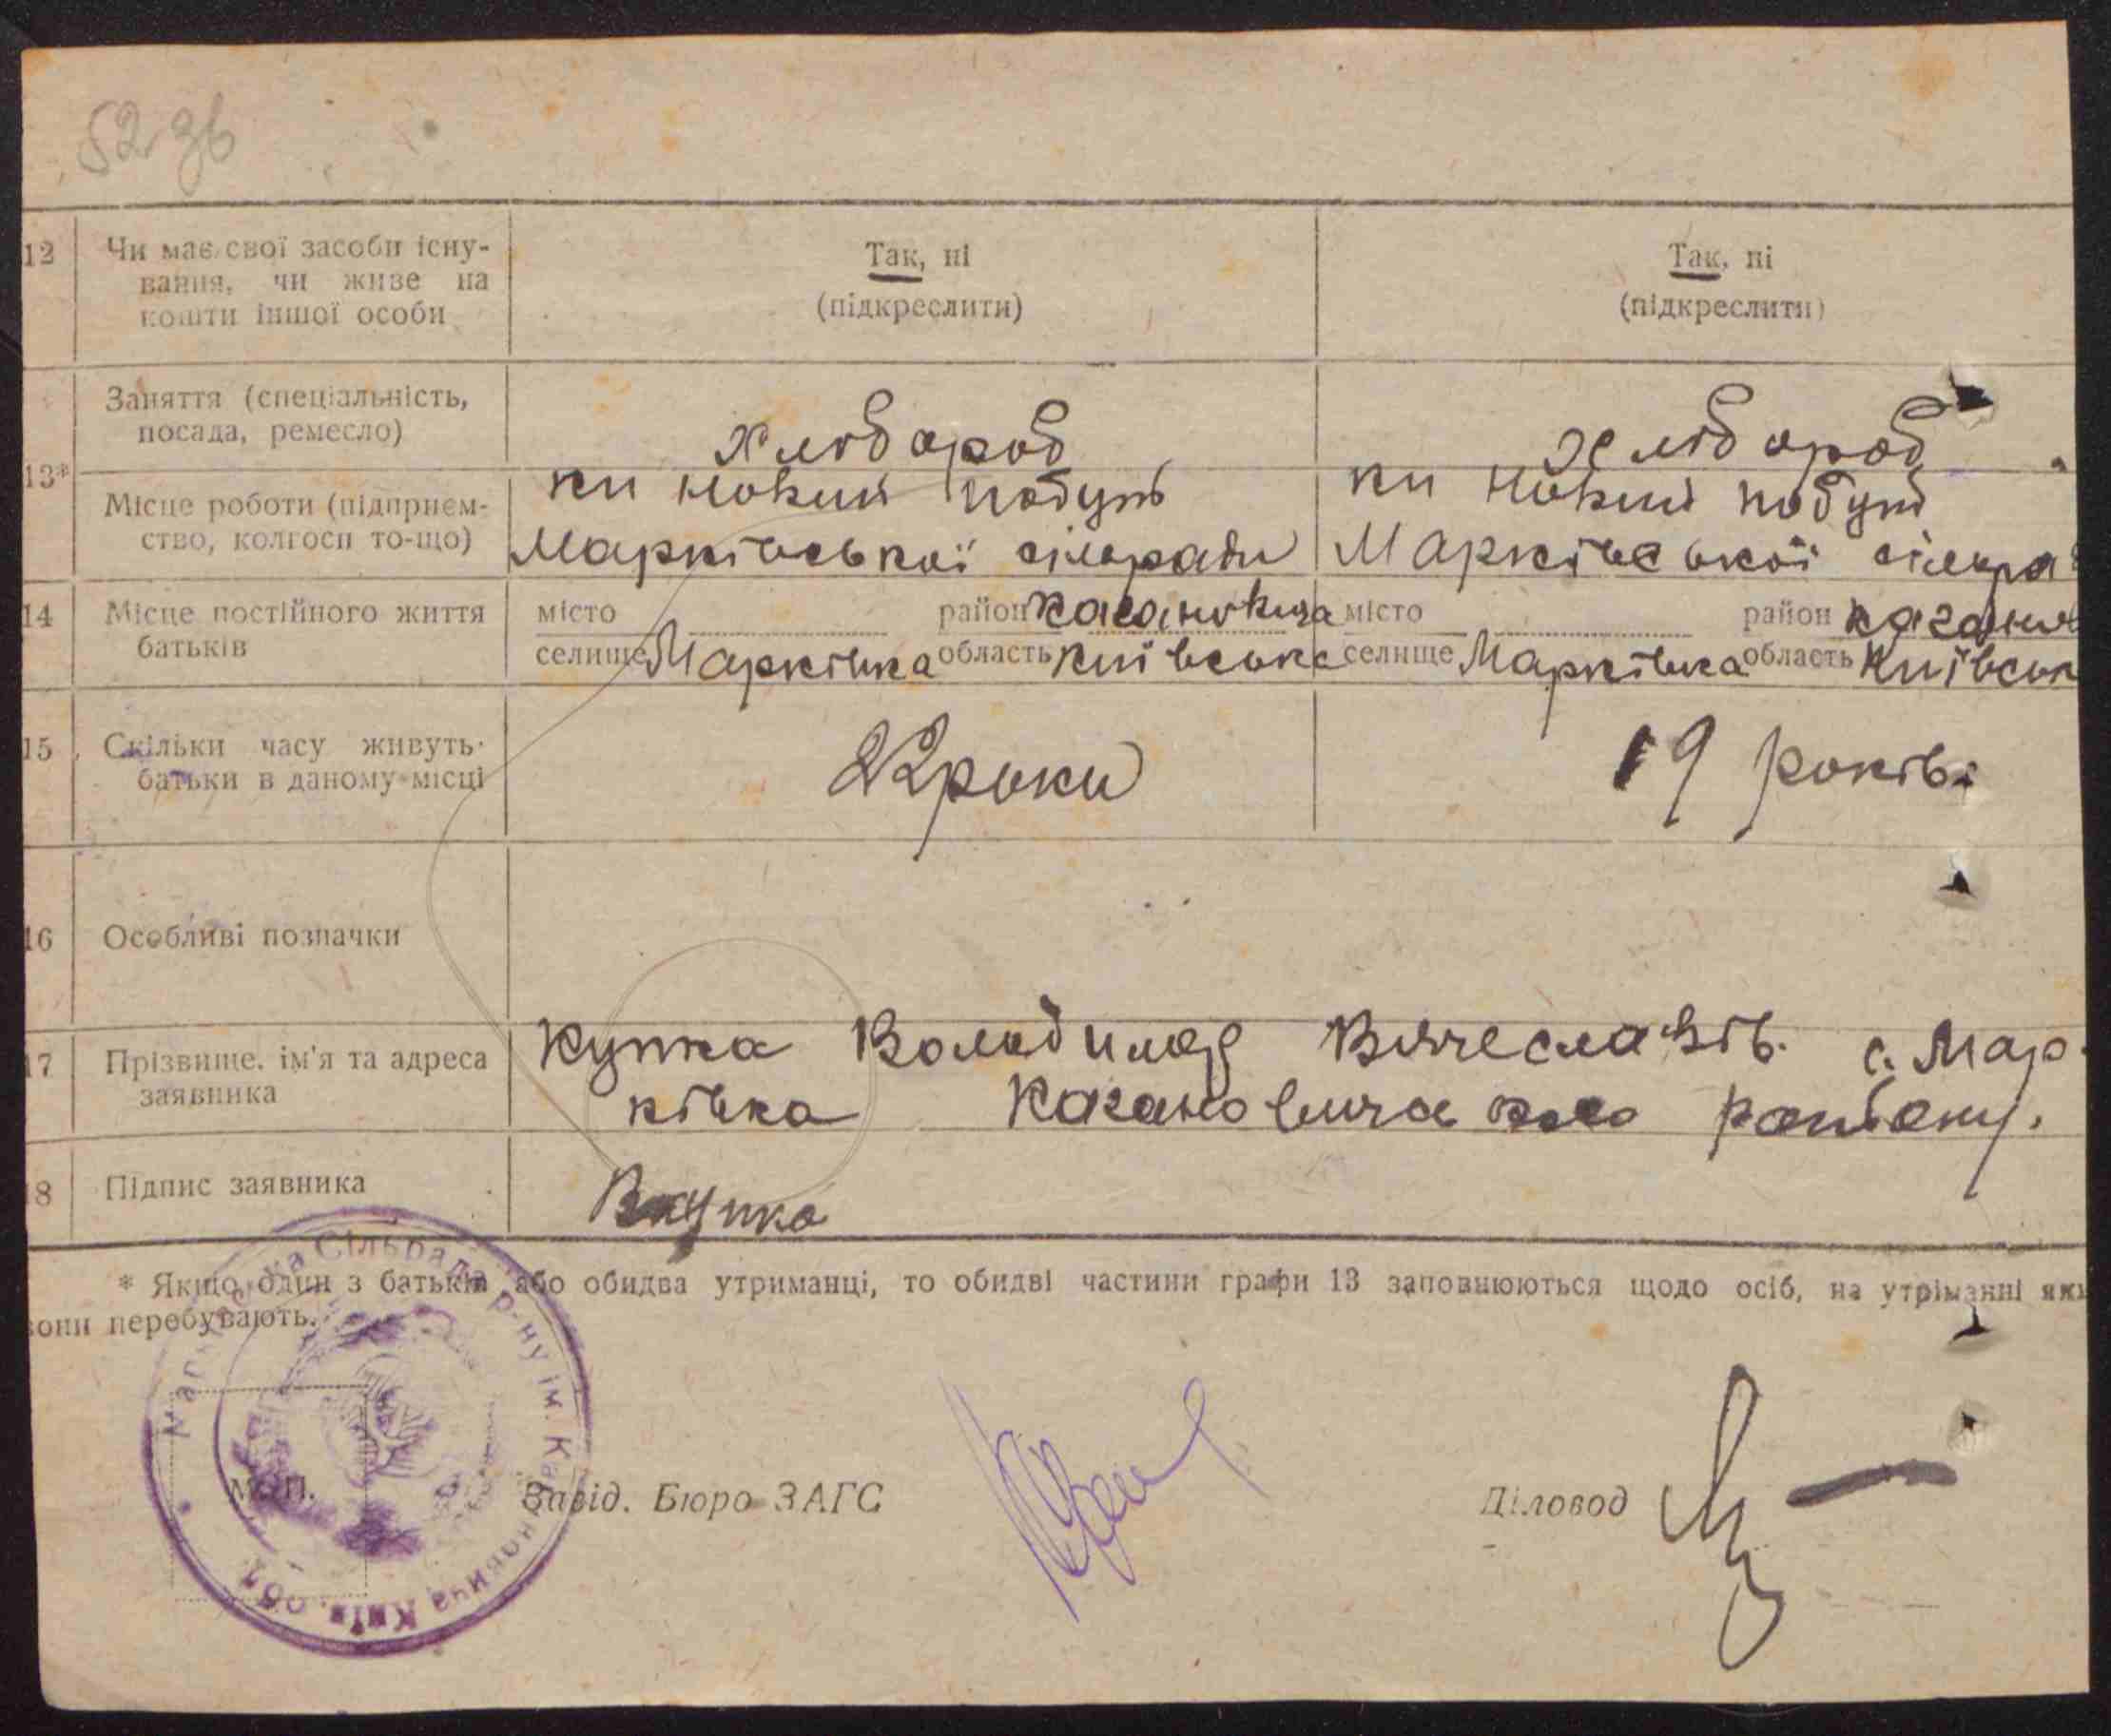 52 зв
12 Чи має свої засоби існу-
вання, чи живе на
кошти іншої особи
Так, ні
(підкреслити)
Так, ні
(підкреслити)
13* Заняття (спеціальність,
посада, ремесло)
хлібороб
хлібороб
Місце роботи (підприєм-
ство, колгосп то-що)
кп новий побут
Марківської сільради
кп новий побут
Марківської сільра
14 Місце постійного життя
батьків
місто район Кагановича
селище Марківка область Київська
місто район Каганов
селище Марківка область Київськ
15 Скільки часу живуть
батьки в даному місці
22 роки
19 років.
16 Особливі позначки
17 Прізвище, ім'я та адреса
заявника
Купка Володимир Вячеславів. с. Мар-
ківка Кагановича району.
18 Підпис заявника
Вкупка
* Якщо один з батьків або обидва утриманці, то обидві частини графи 13 заповнюються щодо осіб, на утріманні яки
вони перебувають.
Марківська Сільрада р-ну ім. Кагановича Київ. обл.
М. П.
Завід. Бюро ЗАГС
Діловод